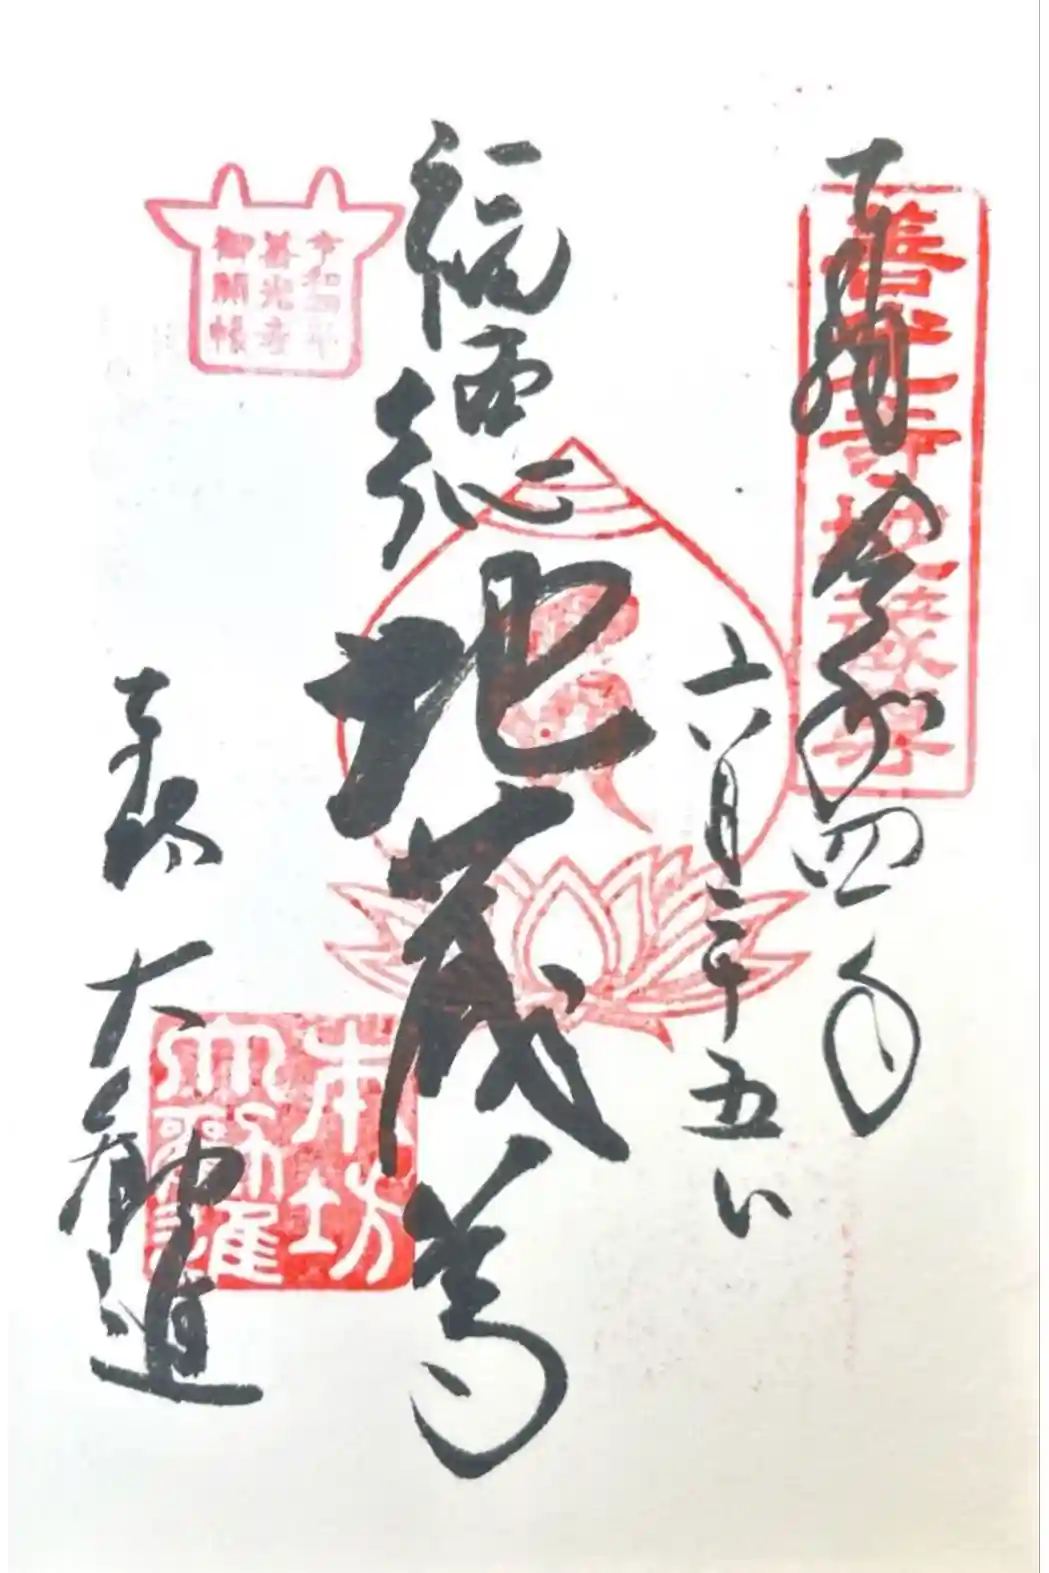 奉拝 令和四年
六月二十五日
地蔵尊
本坊 大勧進
令和四年
善光寺
御開帳
本坊
大勧進
善光寺